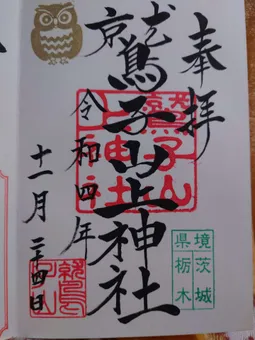 奉拝
鷲子山上神社
令和四年
十一月二十四日
鷲子山
上神社
境茨城
県栃木